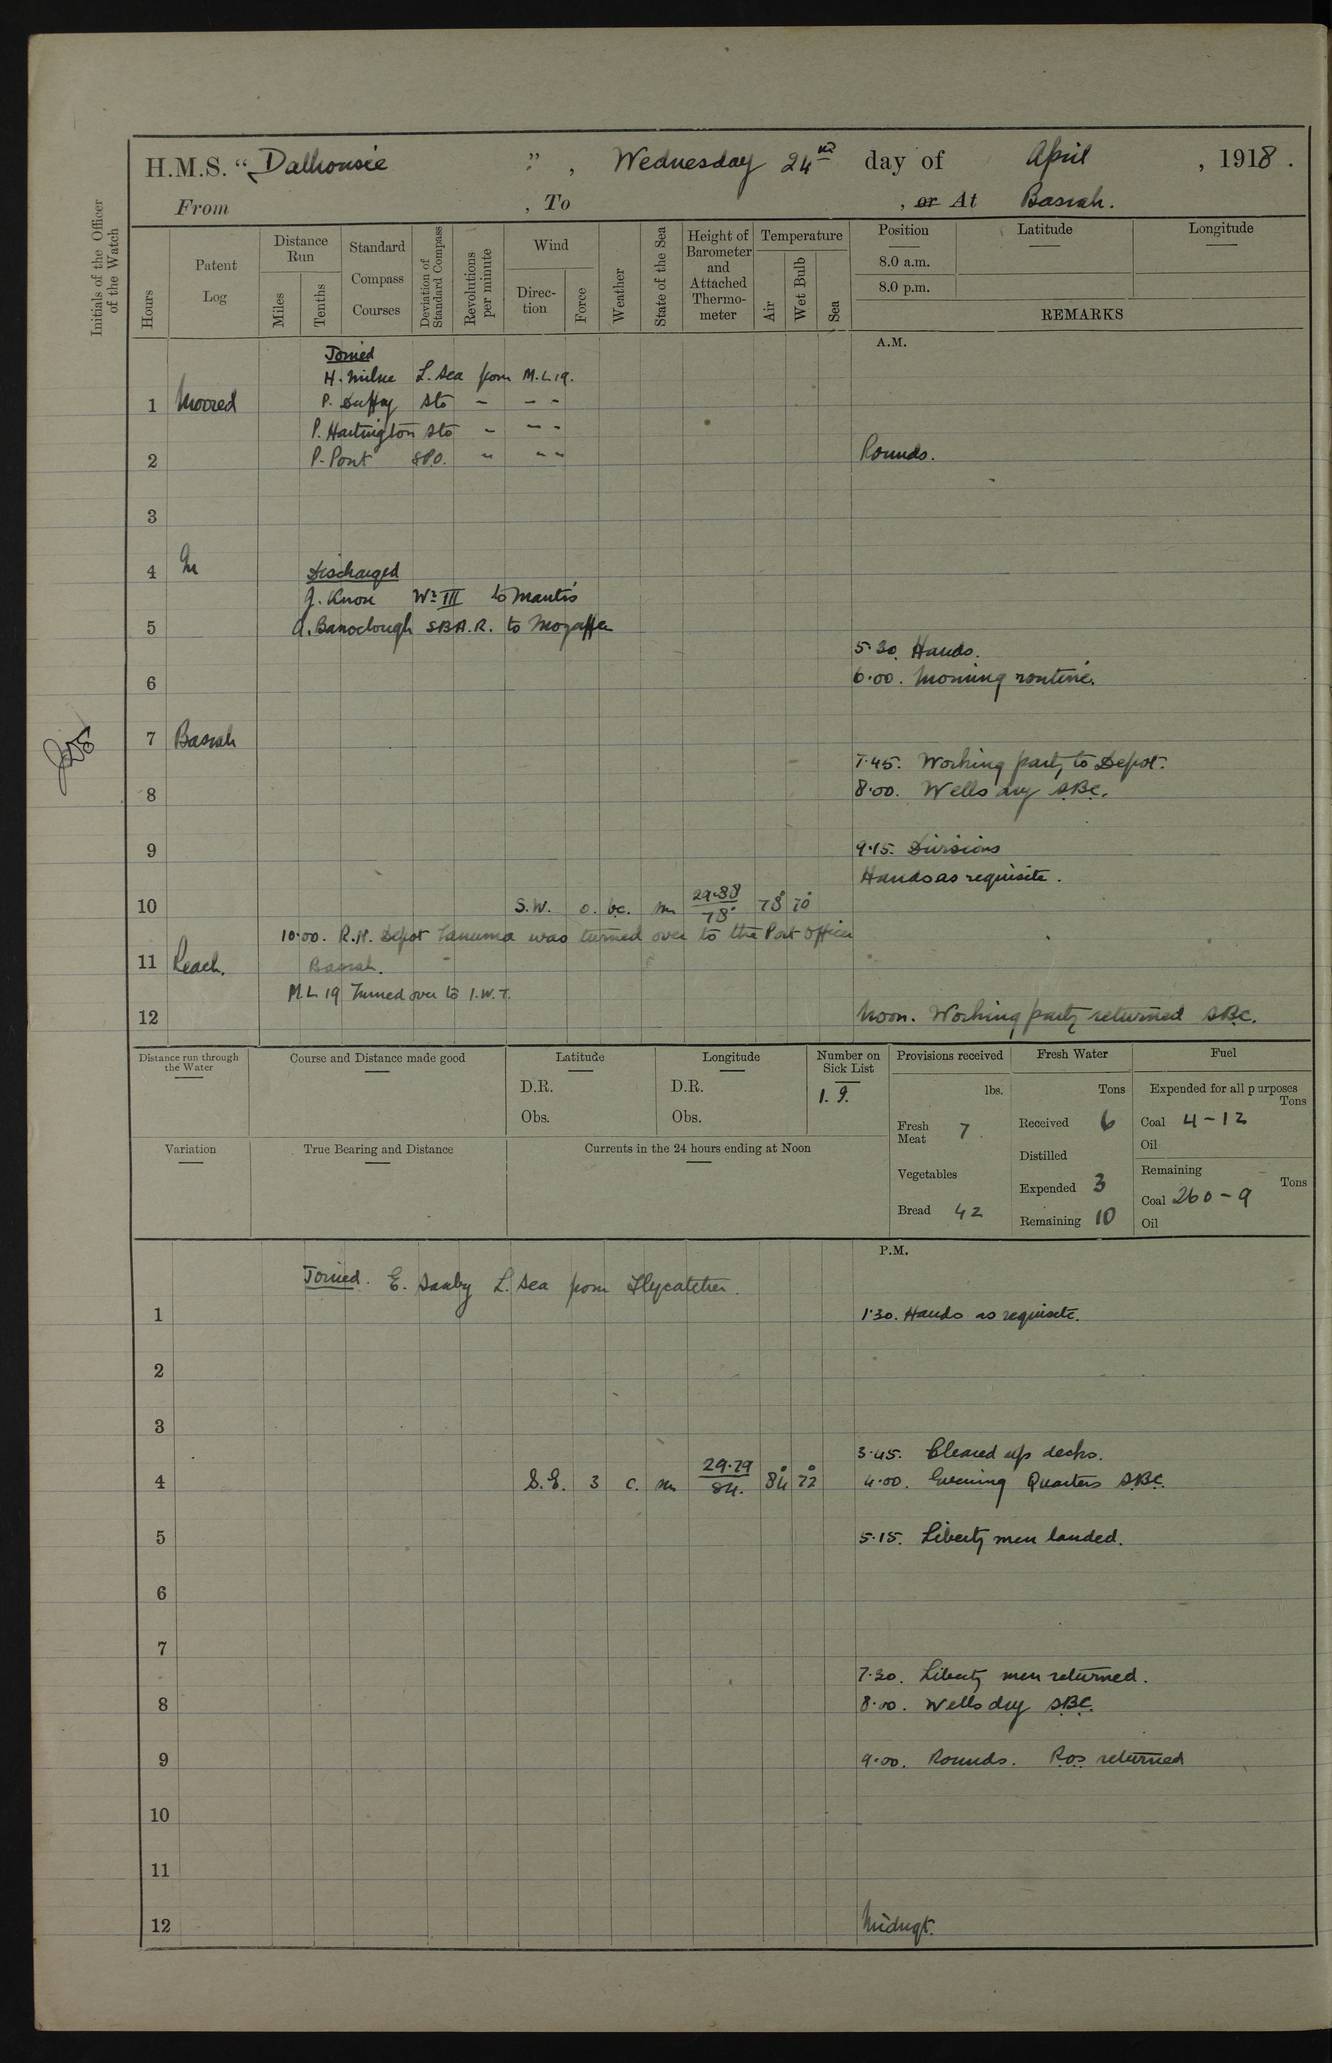 H.M.S. "Dalhousie", Wednesday 24th day of April, 1918.
From , To , or At Basrah.
Initials of the Officer of the Watch
Hours
Patent Log
Distance Run
Miles
Tenths
Standard Compass Courses
Deviation of Standard Compass
Revolutions per minute
Wind
Direction
Force
Weather
State of the Sea
Height of Barometer and Attached Thermometer
Temperature
Air
Wet Bulb
Sea
Position
8.0 a.m.
8.0 p.m.
Latitude
Longitude
REMARKS
A.M.
Joined
H. Milne L. Sea from M.L 19.
1 Moored P. Duffay Sto - - -
P. Hartington Sto - - -
2 P. Pont SPO. " " " Rounds.
3
4 In Discharged
J. Knox Wr III to Mantis
5 A. Barroclough SBA.R. to Mozaffer
5.30. Hands.
6 6.00. Morning routine.
7 Basrah
7.45. Working party to Depot.
8 8.00. Wells dry SBC.
9 9.15. Divisions
Hands as requisite.
10 S.W. 0. bc. m 29.88 78° 78° 70°
10.00. R.N. Depot Tanuma was turned over to the Port Officer
11 Reach. Basrah.
M.L 19 Turned over to I.W.T.
12 Noon. Working party returned SBC.
Distance run through the Water
Course and Distance made good
Latitude
D.R.
Obs.
Longitude
D.R.
Obs.
Number on Sick List
1. 9.
Provisions received
lbs.
Fresh Meat 7
Vegetables
Bread 42
Fresh Water
Tons
Received 6
Distilled
Expended 3
Remaining 10
Fuel
Expended for all purposes
Tons
Coal 4-12
Oil
Remaining
Tons
Coal 260-9
Oil
Variation
True Bearing and Distance
Currents in the 24 hours ending at Noon
P.M.
Joined. E. Saxby L. Sea from Flycatcher.
1 1.30. Hands as requisite.
2
3
3.45. Cleared up decks.
4 S.E. 3 c. m 29.79 84. 84° 72° 4.00. Evening Quarters SBC.
5 5.15. Liberty men landed.
6
7
7.30. Liberty men returned.
8 8.00. Wells dry SBC.
9 9.00. Rounds. Ros returned
10
11
12 Midngt.